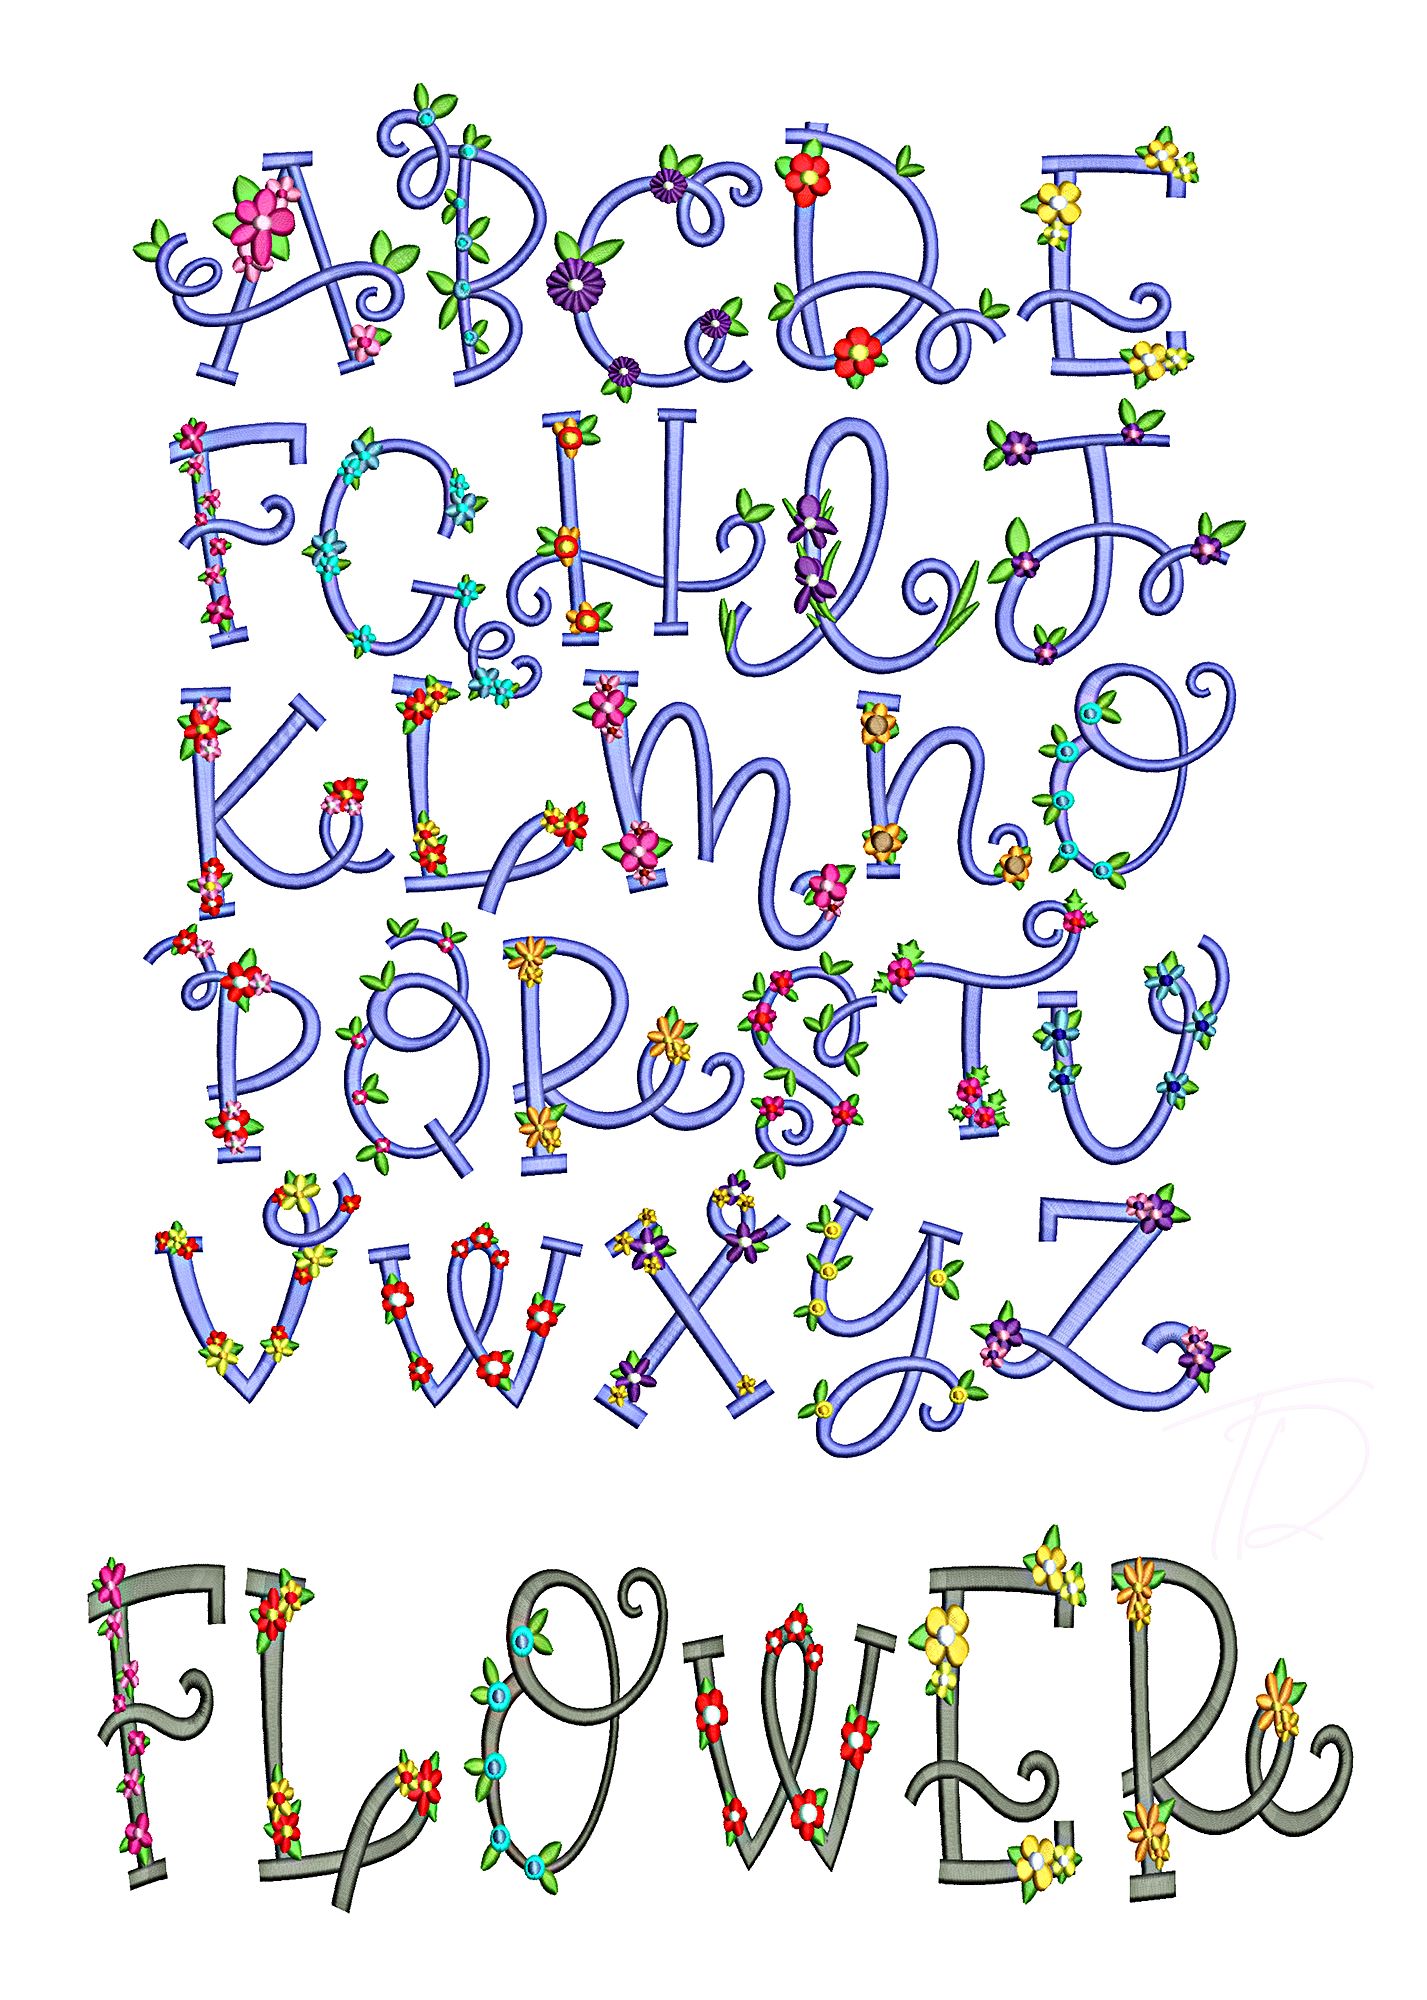 ABCDE
FGHIJ
KLmnO
PQRSTU
VWXyZ
FLOWER
TD